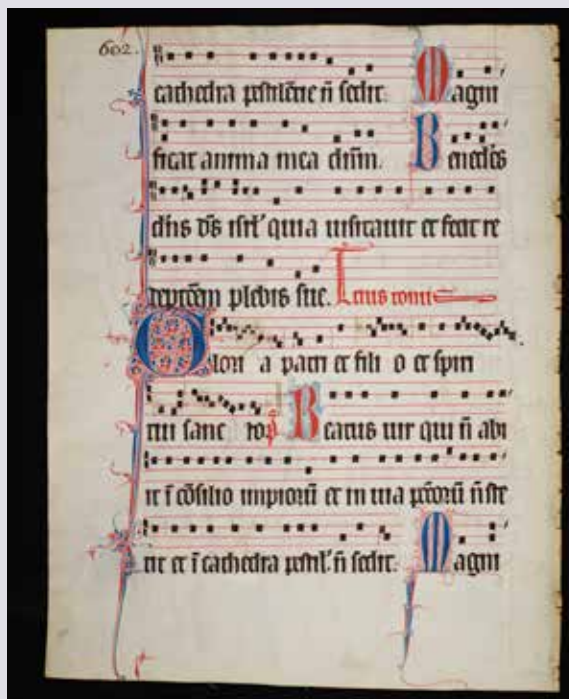 602.
cathedra pestilẽtie ñ sedit. Magni
ficat anima mea dñm. Benedictꝰ
dñs dš isrl' quia uisitauit et fecit re
deptõem plebis sue. Tcius toni
Glori a patri et fili o et spiri
tui sanc to. p̃ Beatus uir qui ñ abi
it ĩ cõsilio impiorũ et in uia pctorũ ñ ste
tit et ĩ cathedra pestil' ñ sedit. Magni